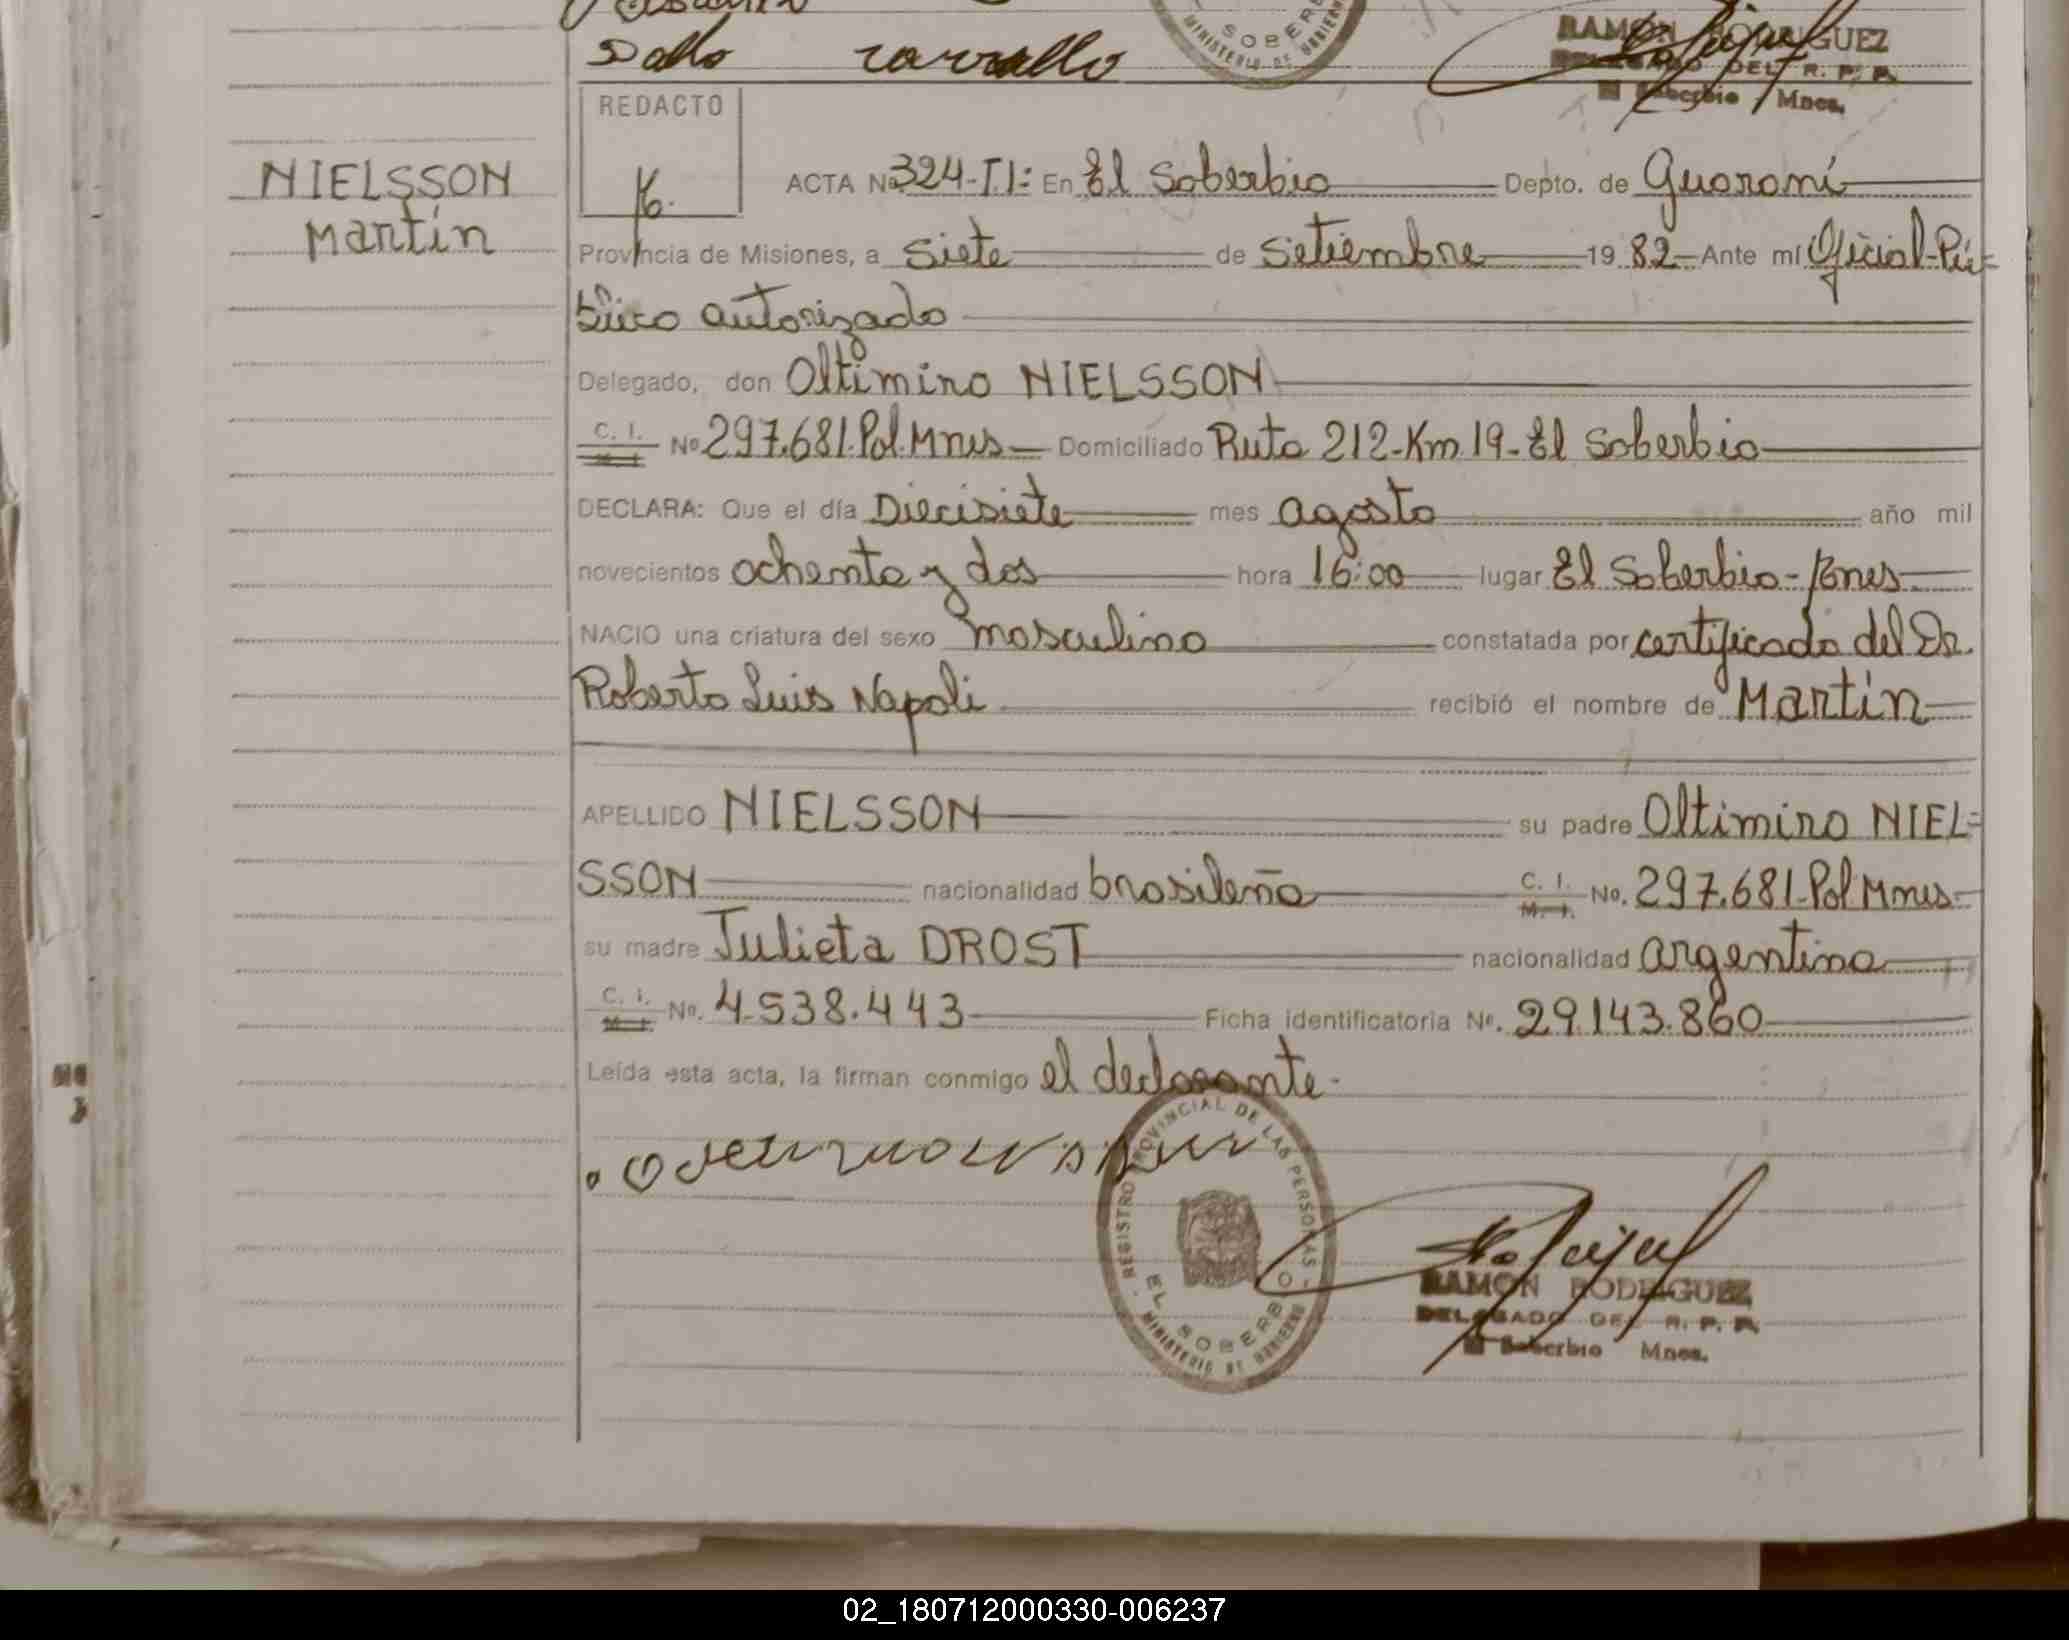 Dallo Carvallo
SOBERB
MINISTERIO DE GOBIERNO
RAMON RODRIGUEZ
DELEGADO DEL R. P. P.
El Soberbio Mnes.
NIELSSON
Martín
REDACTO
ACTA No 324-T.I: En El Soberbio Depto. de Guaraní
Provincia de Misiones, a Siete de Setiembre 19 82 Ante mí Oficial Pú-
blico autorizado
Delegado, don Oltimiro NIELSSON
C. I. No 297.681-Pol. Mnes Domiciliado Ruta 212-Km 19-El Soberbio
DECLARA: Que el día Diecisiete mes agosto año mil
novecientos ochenta y dos hora 16:00 lugar El Soberbio-Mnes
NACIO una criatura del sexo masculino constatada por certificado del Dr.
Roberto Luis Napoli recibió el nombre de Martín
APELLIDO NIELSSON su padre Oltimiro NIEL=
SSON nacionalidad brasileña C. I. M. I. No. 297.681-Pol Mnes
su madre Julieta DROST nacionalidad argentina
C. I. No. 4.538.443 Ficha identificatoria No. 29.143.860
Leída esta acta, la firman conmigo el declarante.
REGISTRO PROVINCIAL DE LAS PERSONAS
EL SOBERBIO
MINISTERIO DE GOBIERNO
RAMON RODRIGUEZ
DELEGADO DEL R. P. P.
El Soberbio Mnes.
02_180712000330-006237